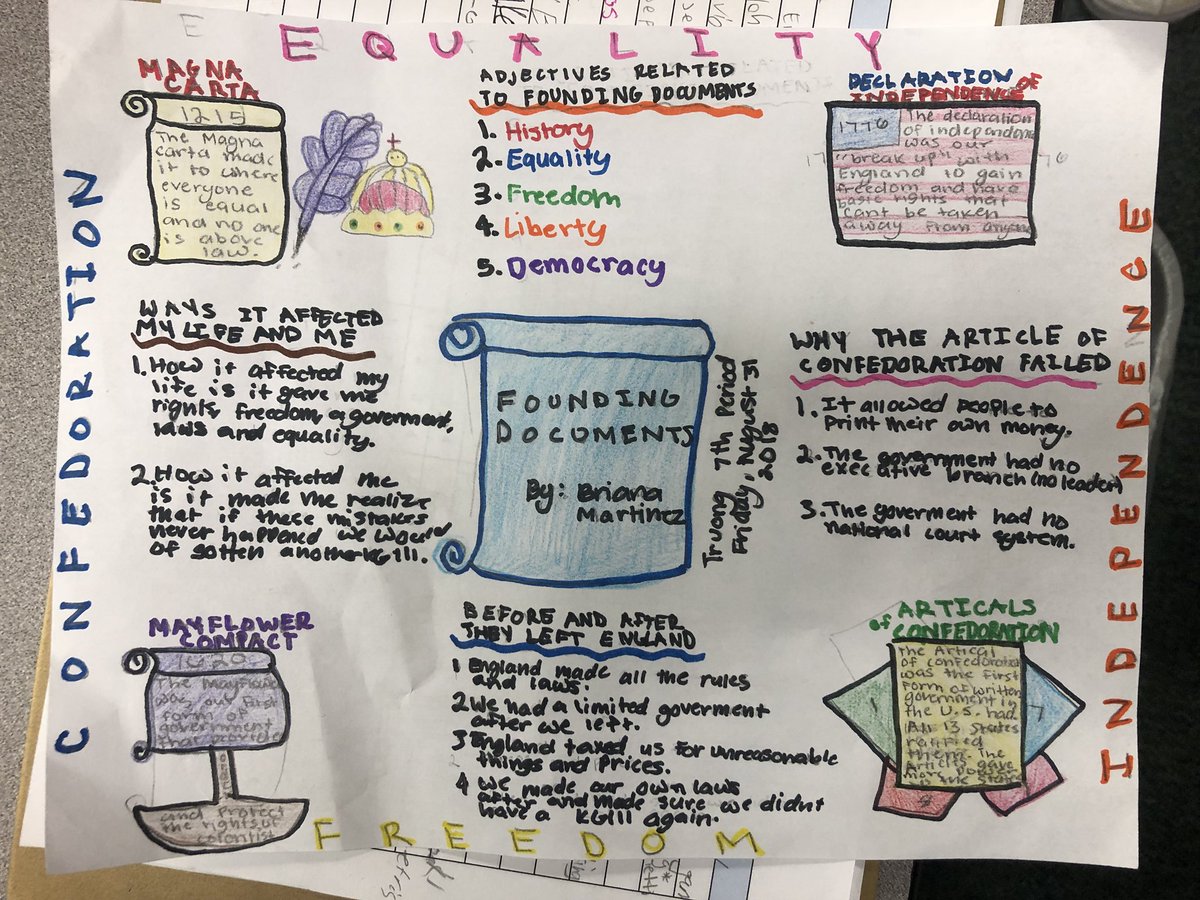 EQUALITY
MAGNA
CARTA
1215
The Magna
carta made
it to where
everyone
is equal
and no one
is above
law.
ADJECTIVES RELATED
TO FOUNDING DOCUMENTS
1. History
2. Equality
3. Freedom
4. Liberty
5. Democracy
DECLARATION OF
INDEPENDENCE
1776
The declaration
of independence
was our
"break up" with
England to gain
freedom and have
basic rights that
cant be taken
away from anyone
CONFEDORATION
WAYS IT AFFECTED
MY LIFE AND ME
1. How it affected my
life is it gave me
rights, freedom, a goverment,
laws and equality.
2. How it affected me
is it made me realize
that if these mistakes
never happened we would
of gotten another KGIII.
FOUNDING
DOCUMENTS
By: Briana
Martinez
Truong 7th Period
Friday, August 31
2018
WHY THE ARTICLE OF
CONFEDORATION FAILED
1. It allowed people to
Print their own money.
2. The government had no
execative branch (no leader)
3. The goverment had no
national court system.
INDEPENDENCE
MAYFLOWER
COMPACT
1620
The Mayflower
was our first
form of
government
that provide
and protect
the rights of
colonist
BEFORE AND AFTER
THEY LEFT ENGLAND
1 England made all the rules
and laws.
2 We had a limited goverment
after we left.
3 England taxed us for unreasonable
things and prices.
4 we made our own laws
after and made sure we didnt
have a KGIII again.
ARTICALS
of CONFEDORATION
The Artical
of confedoration
was the first
form of written
government in
the U.S. had
All 13 states
ratified
them. The
Articles gave
more power
in the states
FREEDOM